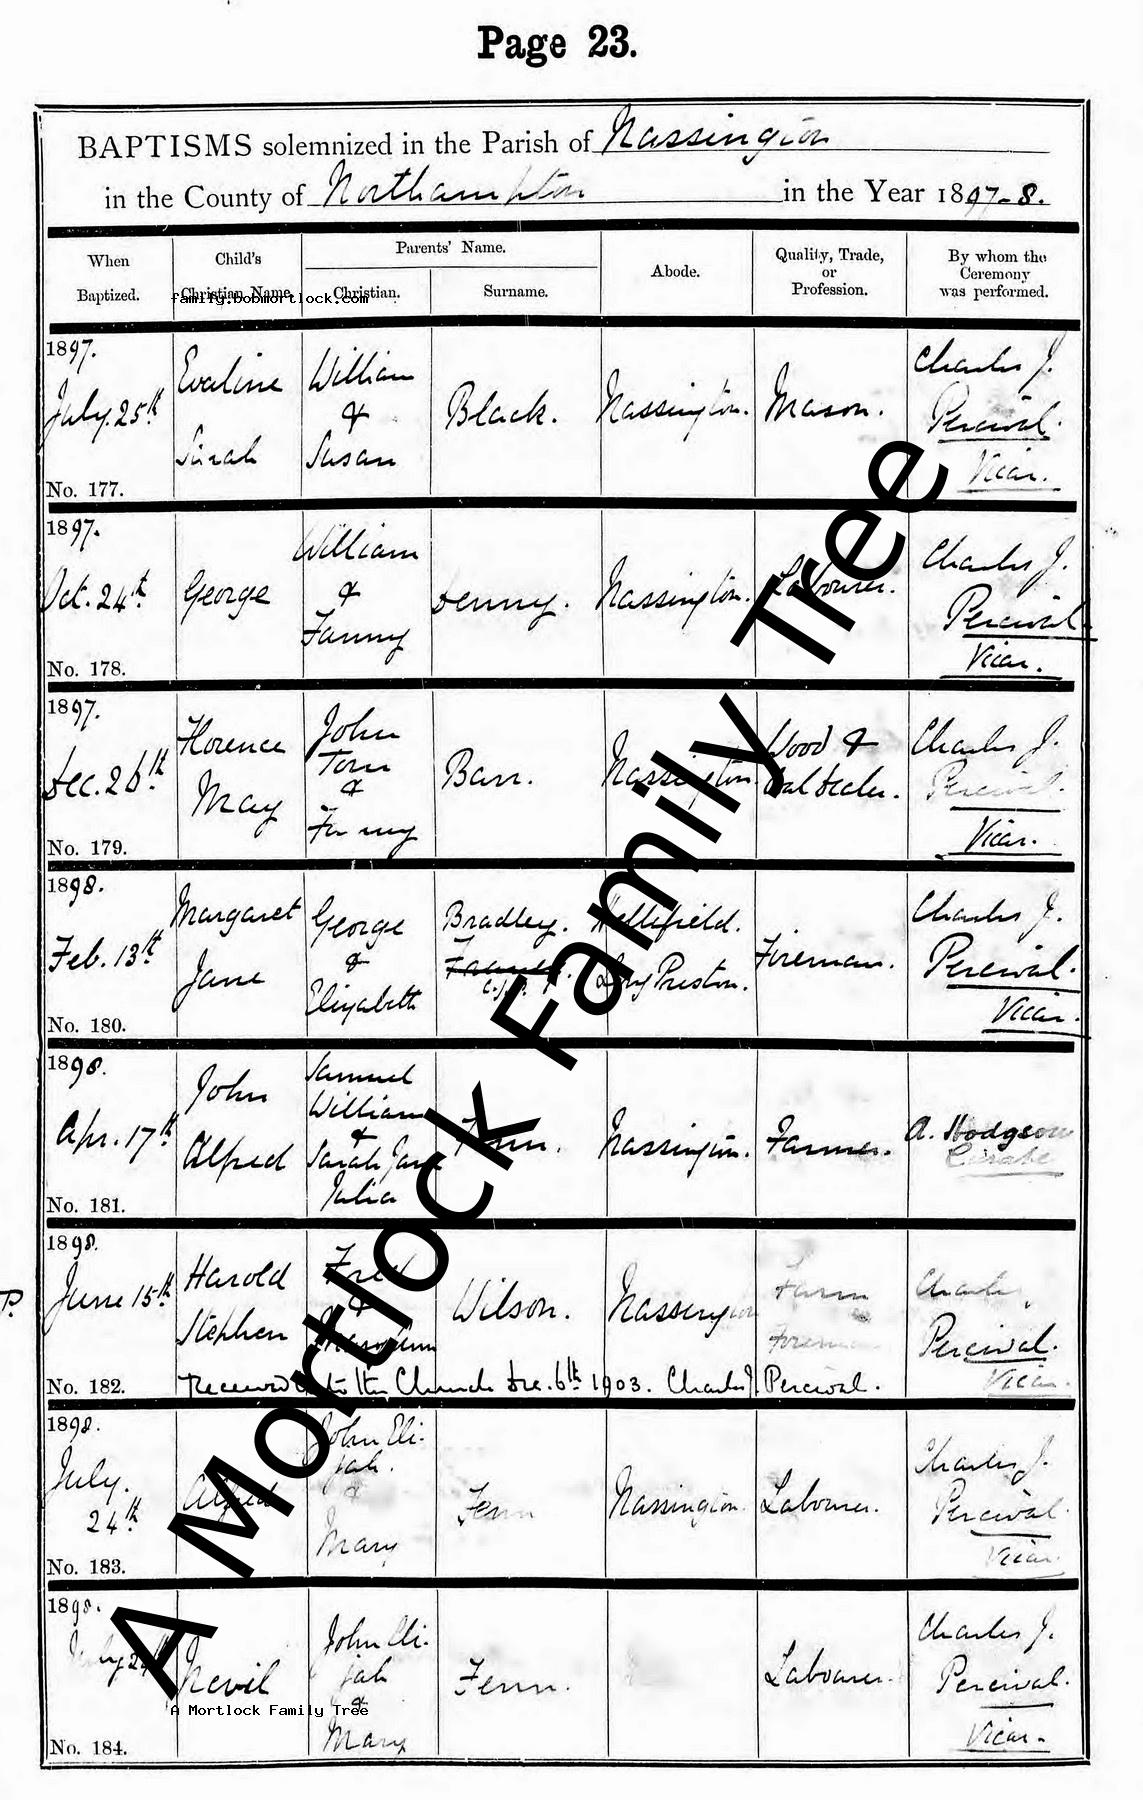 Page 23.
BAPTISMS solemnized in the Parish of Nassington
in the County of Northampton in the Year 1897-8.
When Baptized.
Child's Christian Name.
Parents' Name.
Christian.
Surname.
Abode.
Quality, Trade, or Profession.
By whom the Ceremony was performed.
family.bobmortlock.com
1897.
July. 25th
No. 177.
Evaline
Sarah
William
&
Susan
Black.
Nassington.
Mason.
Charles J.
Percival.
Vicar.
1897.
Oct. 24th
No. 178.
George
William
&
Fanny
Denny.
Nassington.
Labourer.
Charles J.
Percival.
Vicar.
1897.
Dec. 26th
No. 179.
Florence
May
John
Tom
&
Fanny
Barr.
Nassington.
Wood &
Coal Dealer.
Charles J.
Percival.
Vicar.
1898.
Feb. 13th
No. 180.
Margaret
Jane
George
&
Elizabeth
Bradley.
C.J.P.
Hellifield.
Long Preston.
Fireman.
Charles J.
Percival.
Vicar.
1898.
Apr. 17th
No. 181.
John
Alfred
Samuel
William
&
Sarah Jane
Julia
Nassington.
Farmer.
A. Hodgson
Curate
P.
1898.
June 15th
No. 182.
Harold
Stephen
Fred
&
Mary Ann
Wilson.
Nassington
Farm
Foreman
Charles
Percival.
Vicar.
Received into the Church Dec. 6th 1903. Charles J. Percival.
1898.
July.
24th
No. 183.
Alfred
John Eli-
jah.
&
Mary
Fenn
Nassington.
Labourer.
Charles J.
Percival.
Vicar.
1898.
July 24th
No. 184.
Nevil
John Eli-
jah
&
Mary
Fenn.
Labourer.
Charles J.
Percival.
Vicar.
A Mortlock Family Tree
A Mortlock Family Tree